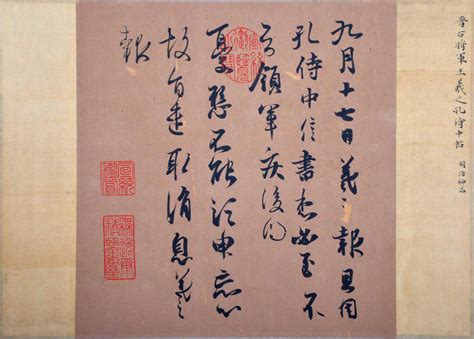 晉右將軍王羲之孔侍中帖
九月十七日羲之報且因
孔侍中信書想必至不
知領軍疾後問
憂懸不能須臾忘心
故旬遣取消息羲之
報